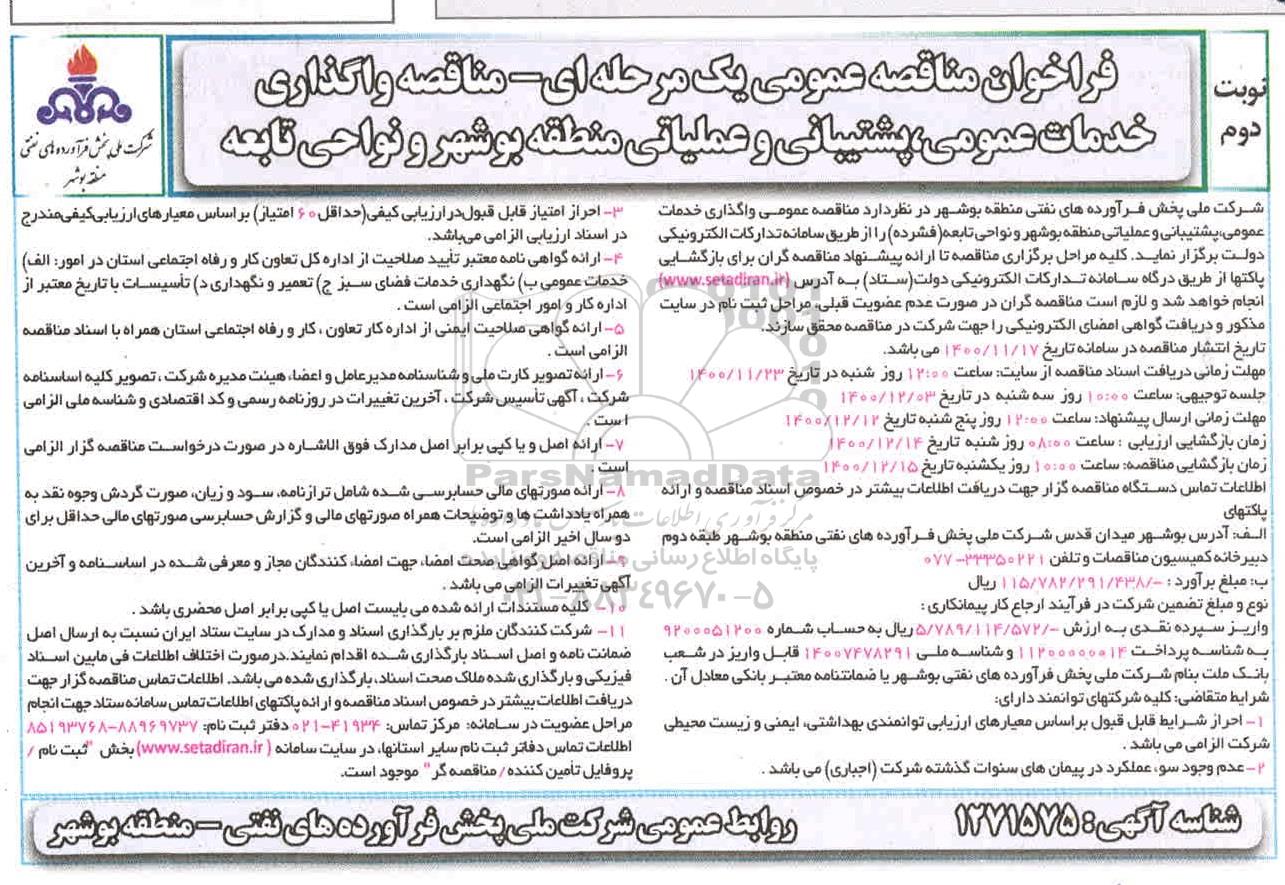 نوبت
دوم
فراخوان مناقصه عمومی یک مرحله ای – مناقصه واگذاری
خدمات عمومی، پشتیبانی و عملیاتی منطقه بوشهر و نواحی تابعه
شرکت ملی پخش فرآورده های نفتی
منطقه بوشهر
شرکت ملی پخش فرآورده های نفتی منطقه بوشهر در نظردارد مناقصه عمومی واگذاری خدمات
عمومی، پشتیبانی و عملیاتی منطقه بوشهر و نواحی تابعه(فشرده) را از طریق سامانه تدارکات الکترونیکی
دولت برگزار نماید. کلیه مراحل برگزاری مناقصه تا ارائه پیشنهاد مناقصه گران برای بازگشایی
پاکتها از طریق درگاه سامانه تدارکات الکترونیکی دولت(ستاد) به آدرس (www.setadiran.ir)
انجام خواهد شد و لازم است مناقصه گران در صورت عدم عضویت قبلی، مراحل ثبت نام در سایت
مذکور و دریافت گواهی امضای الکترونیکی را جهت شرکت در مناقصه محقق سازند.
تاریخ انتشار مناقصه در سامانه تاریخ ۱۴۰۰/۱۱/۱۷ می باشد.
مهلت زمانی دریافت اسناد مناقصه از سایت: ساعت ۱۲:۰۰ روز شنبه در تاریخ ۱۴۰۰/۱۱/۲۳
جلسه توجیهی: ساعت ۱۰:۰۰ روز سه شنبه در تاریخ ۱۴۰۰/۱۲/۰۳
مهلت زمانی ارسال پیشنهاد: ساعت ۱۲:۰۰ روز پنج شنبه تاریخ ۱۴۰۰/۱۲/۱۲
زمان بازگشایی ارزیابی : ساعت ۰۸:۰۰ روز شنبه تاریخ ۱۴۰۰/۱۲/۱۴
زمان بازگشایی مناقصه: ساعت ۱۰:۰۰ روز یکشنبه تاریخ ۱۴۰۰/۱۲/۱۵
اطلاعات تماس دستگاه مناقصه گزار جهت دریافت اطلاعات بیشتر در خصوص اسناد مناقصه و ارائه
پاکتهای
الف: آدرس بوشهر میدان قدس شرکت ملی پخش فرآورده های نفتی منطقه بوشهر طبقه دوم
دبیرخانه کمیسیون مناقصات و تلفن ۳۳۳۵۰۲۲۱-۰۷۷
ب: مبلغ برآورد : -/۱۱۵/۷۸۲/۲۹۱/۴۳۸ ریال
نوع و مبلغ تضمین شرکت در فرآیند ارجاع کار پیمانکاری :
واریز سپرده نقدی به ارزش -/۵/۷۸۹/۱۱۴/۵۷۲ ریال به حساب شماره ۹۲۰۰۰۵۱۲۰۰
به شناسه پرداخت ۱۱۲۰۰۰۰۰۰۱۴ و شناسه ملی ۱۴۰۰۷۴۷۸۲۹۱ قابل واریز در شعب
بانک ملت بنام شرکت ملی پخش فرآورده های نفتی بوشهر یا ضمانتنامه معتبر بانکی معادل آن .
شرایط متقاضی: کلیه شرکتهای توانمند دارای:
۱- احراز شرایط قابل قبول براساس معیارهای ارزیابی توانمندی بهداشتی، ایمنی و زیست محیطی
شرکت الزامی می باشد .
۲- عدم وجود سوء عملکرد در پیمان های سنوات گذشته شرکت (اجباری) می باشد .
۳- احراز امتیاز قابل قبول در ارزیابی کیفی(حداقل ۶۰ امتیاز) بر اساس معیارهای ارزیابی کیفی مندرج
در اسناد ارزیابی الزامی می‌باشد.
۴- ارائه گواهی نامه معتبر تأیید صلاحیت از اداره کل تعاون کار و رفاه اجتماعی استان در امور: الف)
خدمات عمومی ب) نگهداری خدمات فضای سبز ج) تعمیر و نگهداری د) تأسیسات با تاریخ معتبر از
اداره کار و امور اجتماعی الزامی است .
۵- ارائه گواهی صلاحیت ایمنی از اداره کار تعاون ، کار و رفاه اجتماعی استان همراه با اسناد مناقصه
الزامی است .
۶- ارائه تصویر کارت ملی و شناسنامه مدیر عامل و اعضاء هیئت مدیره شرکت ، تصویر کلیه اساسنامه
شرکت ، آگهی تأسیس شرکت ، آخرین تغییرات در روزنامه رسمی و کد اقتصادی و شناسه ملی الزامی
است .
۷- ارائه اصل و یا کپی برابر اصل مدارک فوق الاشاره در صورت درخواست مناقصه گزار الزامی
است .
۸- ارائه صورتهای مالی حسابرسی شده شامل ترازنامه، سود و زیان، صورت گردش وجوه نقد به
همراه یادداشت ها و توضیحات همراه صورتهای مالی و گزارش حسابرسی صورتهای مالی حداقل برای
دو سال اخیر الزامی است.
۹- ارائه اصل گواهی صحت امضاء جهت امضاء کنندگان مجاز و معرفی شده در اساسنامه و آخرین
آگهی تغییرات الزامی می باشد .
۱۰- کلیه مستندات ارائه شده می بایست اصل یا کپی برابر اصل محضری باشد .
۱۱- شرکت کنندگان ملزم بر بارگذاری اسناد و مدارک در سایت ستاد ایران نسبت به ارسال اصل
ضمانت نامه و اصل اسناد بارگذاری شده اقدام نمایند.درصورت اختلاف اطلاعات فی مابین اسناد
فیزیکی و بارگذاری شده ملاک صحت اسناد، بارگذاری شده می باشد. اطلاعات تماس مناقصه گزار جهت
دریافت اطلاعات بیشتر در خصوص اسناد مناقصه و ارائه پاکتهای اطلاعات تماس سامانه ستاد جهت انجام
مراحل عضویت در سامانه: مرکز تماس: ۴۱۹۳۴-۰۲۱ دفتر ثبت نام: ۸۸۹۶۹۷۳۷-۸۵۱۹۳۷۶۸
اطلاعات تماس دفاتر ثبت نام سایر استانها، در سایت سامانه (www.setadiran.ir) بخش "ثبت نام /
پروفایل تأمین کننده / مناقصه گر" موجود است.
ParsNamadData
مرکز فرآوری اطلاعات پارس نماد داده ها
پایگاه اطلاع رسانی مناقصه و مزایده
۰۲۱-۸۸۳۴۹۶۷۰-۵
شناسه آگهی: ۱۲۷۱۵۷۵
روابط عمومی شرکت ملی پخش فرآورده های نفتی – منطقه بوشهر